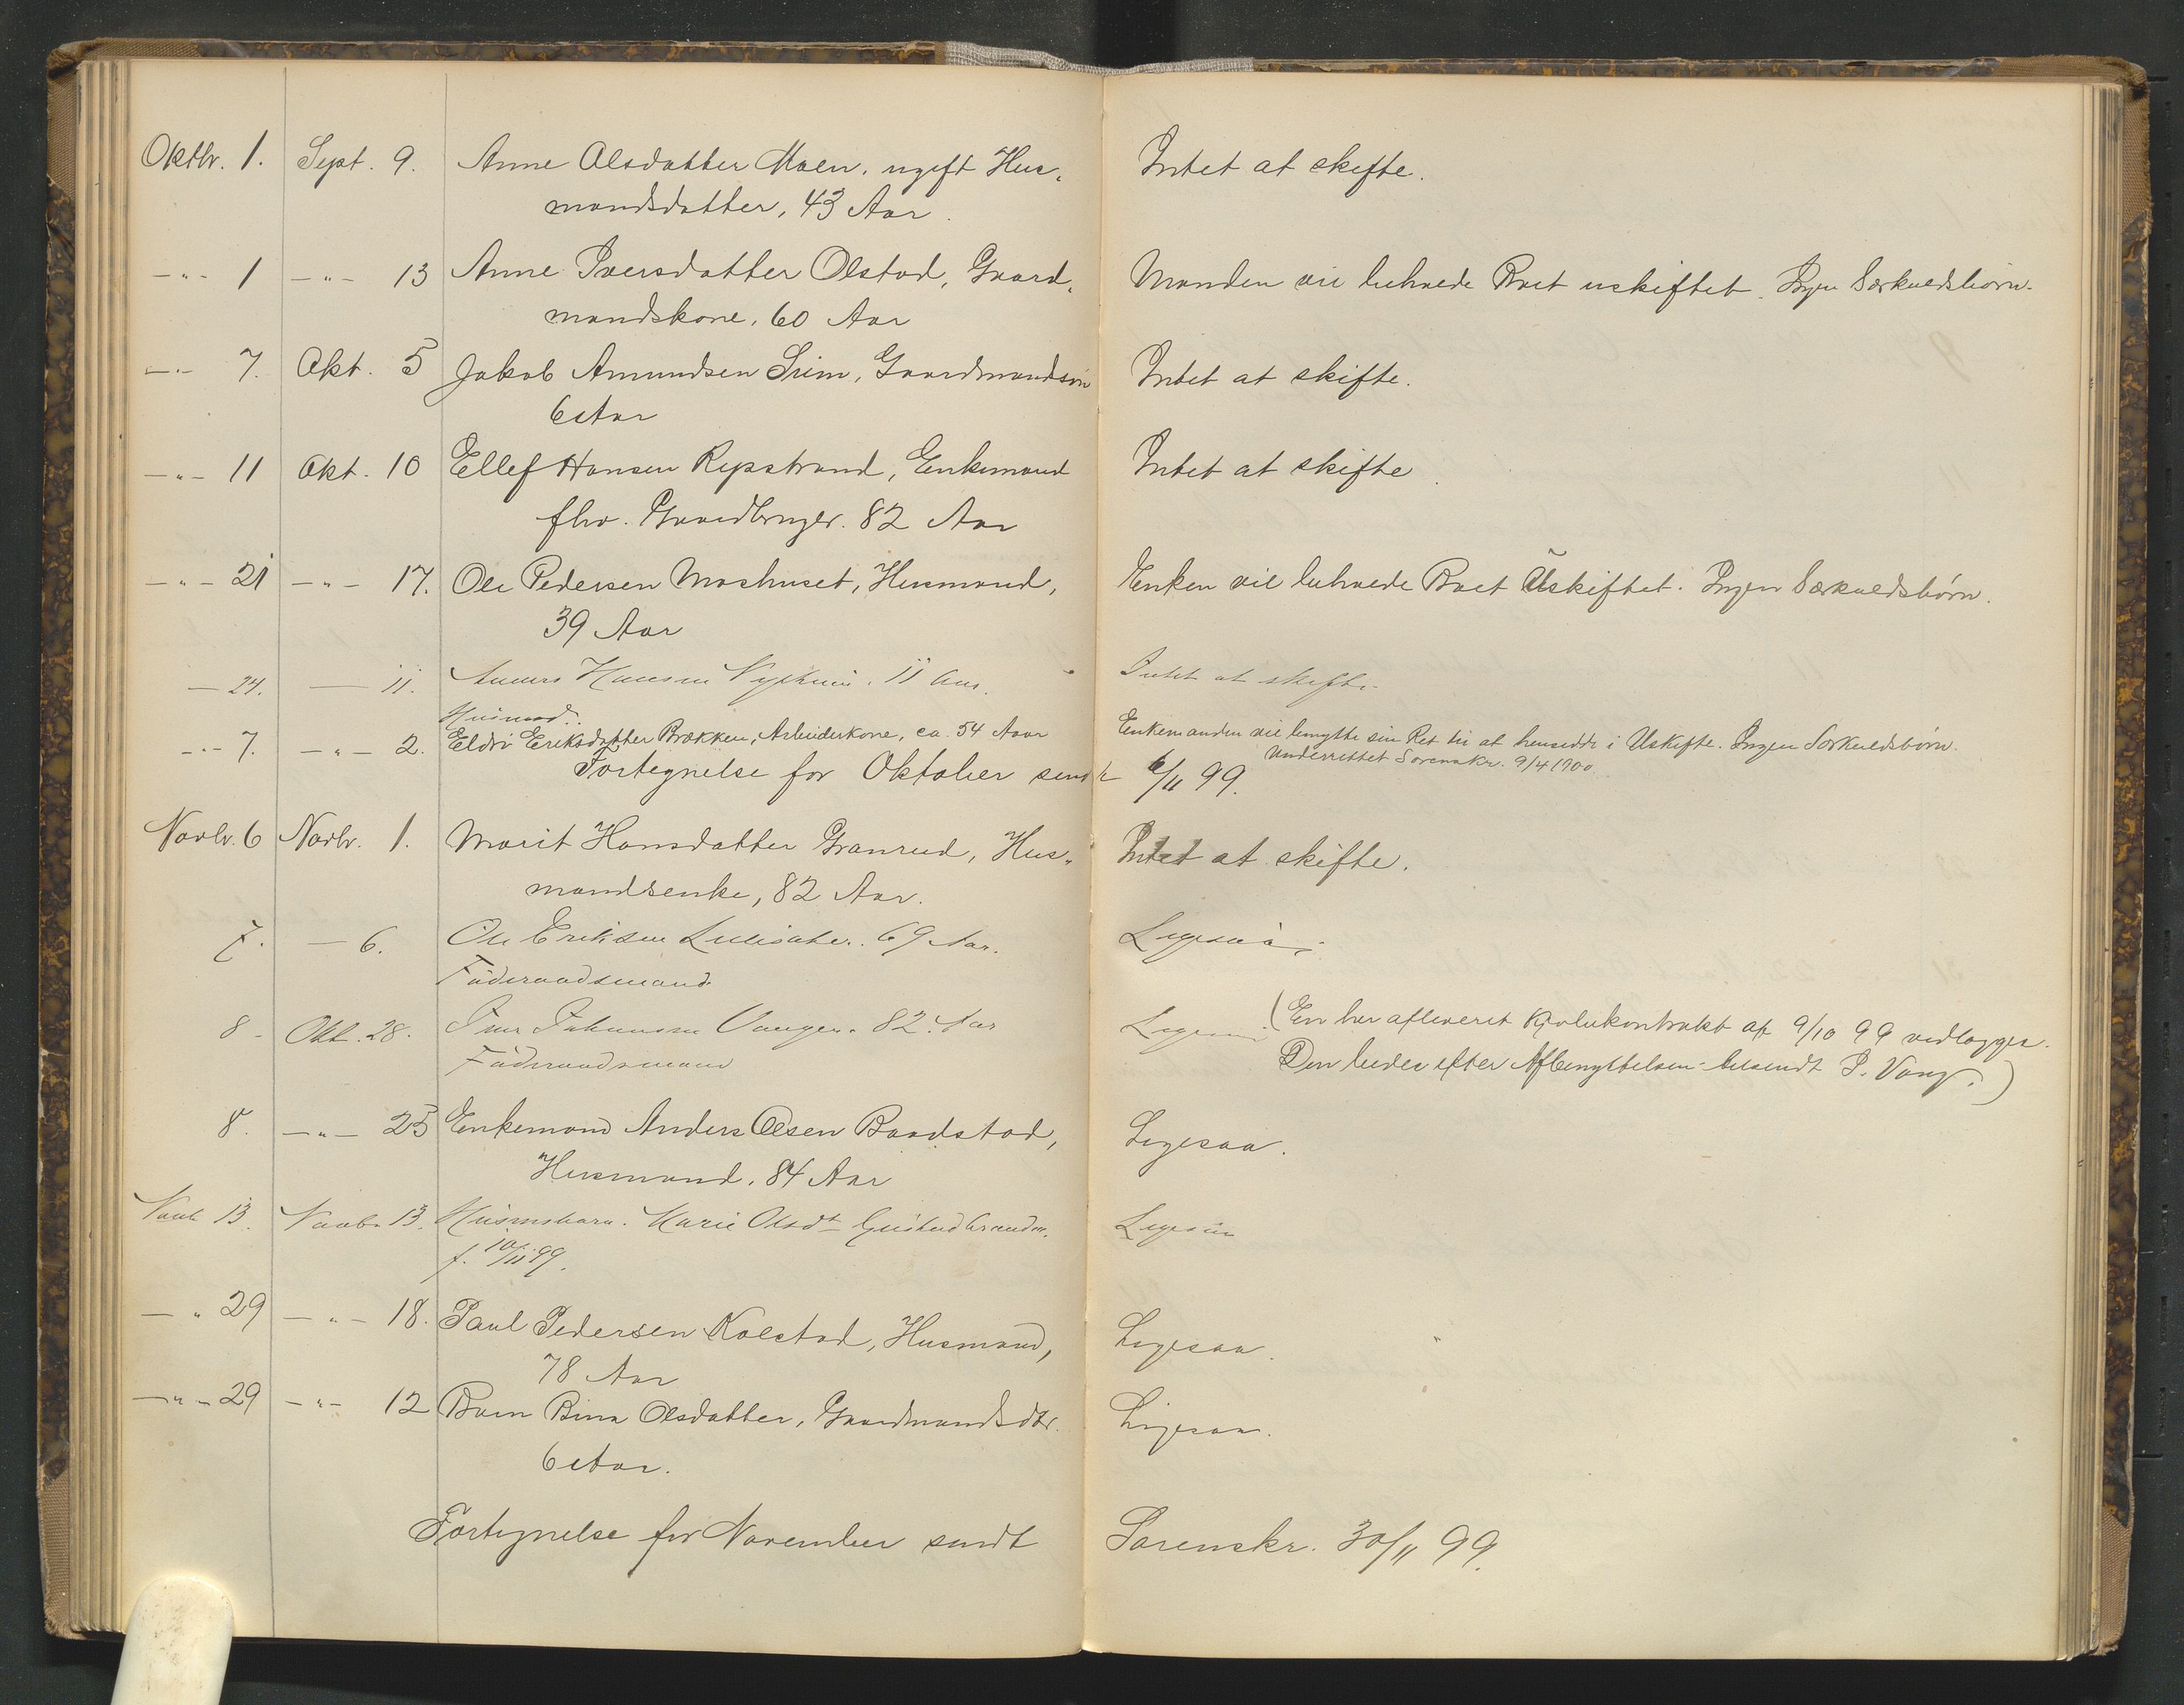 Oktbr. 1. Sept. 9. Anne Olsdatter Moen, ugift Hus- Intet at skifte.
mandsdatter, 43 Aar.
-"- 1 -"- 13 Anne Iversdatter Olstad, Gaard- Manden vil behoede Boet uskiftet. Ingen Særkuldsbørn.
mandskone, 60 Aar
-"- 7. Okt. 5 Jakob Amundsen Grim, Gaardmandssøn Intet at skifte.
6 Aar
-"- 11 Okt. 10 Ellef Hansen Rypstrand, Enkemand Intet at skifte.
fhv. Gaardbruger. 82 Aar
-"- 21 -"- 17. Ole Pedersen Moshuset, Husmand, Enken vil behoede Boet Uskiftet. Ingen Særkuldsbørn.
39 Aar
— 24. — 11. Hansen 11 Aar. Intet at skifte.
Husmd.
-"- 7. -"- 2. Eldri Eriksdatter Brækken, Arbeiderkone, ca. 54 Aar Enkemanden vil benytte sin Ret til at hensidde i Uskifte. Ingen Særkuldsbørn.
Underrettet Sorenskr. 9/4 1900
Fortegnelse for Oktober sendt 6/11 99.
Novbr. 6 Novbr. 1. Marit Hansdatter Granrud, Hus- Intet at skifte.
mandsenke, 82 Aar.
7. — 6. Ole Eriksen 69 Aar. Ligesaa.
Føderaadsmand
8 - Okt. 28. Johannesen Vangen. 82 Aar Ligesaa (En her afleveret Kjøbekontrakt af 9/10 99 vedlægges.
Føderaadsmand Den bedes efter Afbenyttelsen tilsendt P. Vang.)
8. -"- 25 Enkemand Anders Olsen Baadstad, Ligesaa.
Husmand. 84 Aar
Novb 13. Novbr 13. Husmsbarn. Marie Olsdt Ligesaa
f. 10/11 99.
— " 29 -"- 18. Paul Pedersen Kolstad, Husmand, Ligesaa.
78 Aar
-"- 29 -"- 12 Barn Bina Olsdatter, Gaardmandsdtr. Ligesaa.
6 Aar.
Fortegnelse for November sendt Sorenskr. 30/11 99.